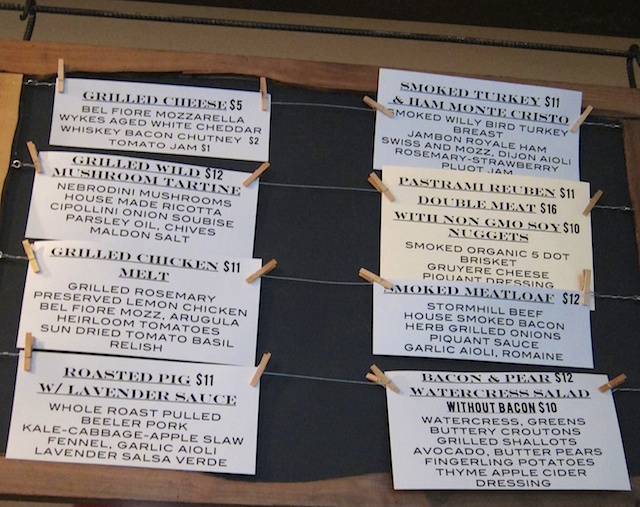 GRILLED CHEESE $5
BEL FIORE MOZZARELLA
WYKES AGED WHITE CHEDDAR
WHISKEY BACON CHUTNEY $2
TOMATO JAM $1
GRILLED WILD $12
MUSHROOM TARTINE
NEBRODINI MUSHROOMS
HOUSE MADE RICOTTA
CIPOLLINI ONION SOUBISE
PARSLEY OIL, CHIVES
MALDON SALT
GRILLED CHICKEN $11
MELT
GRILLED ROSEMARY
PRESERVED LEMON CHICKEN
BEL FIORE MOZZ, ARUGULA
HEIRLOOM TOMATOES
SUN DRIED TOMATO BASIL
RELISH
ROASTED PIG $11
W/ LAVENDER SAUCE
WHOLE ROAST PULLED
BEELER PORK
KALE-CABBAGE-APPLE SLAW
FENNEL, GARLIC AIOLI
LAVENDER SALSA VERDE
SMOKED TURKEY $11
& HAM MONTE CRISTO
SMOKED WILLY BIRD TURKEY
BREAST
JAMBON ROYALE HAM
SWISS AND MOZZ, DIJON AIOLI
ROSEMARY-STRAWBERRY
PLUOT JAM
PASTRAMI REUBEN $11
DOUBLE MEAT $16
WITH NON GMO SOY $10
NUGGETS
SMOKED ORGANIC 5 DOT
BRISKET
GRUYERE CHEESE
PIQUANT DRESSING
SMOKED MEATLOAF $12
STORMHILL BEEF
HOUSE SMOKED BACON
HERB GRILLED ONIONS
PIQUANT SAUCE
GARLIC AIOLI, ROMAINE
BACON & PEAR $12
WATERCRESS SALAD
WITHOUT BACON $10
WATERCRESS, GREENS
BUTTERY CROUTONS
GRILLED SHALLOTS
AVOCADO, BUTTER PEARS
FINGERLING POTATOES
THYME APPLE CIDER
DRESSING